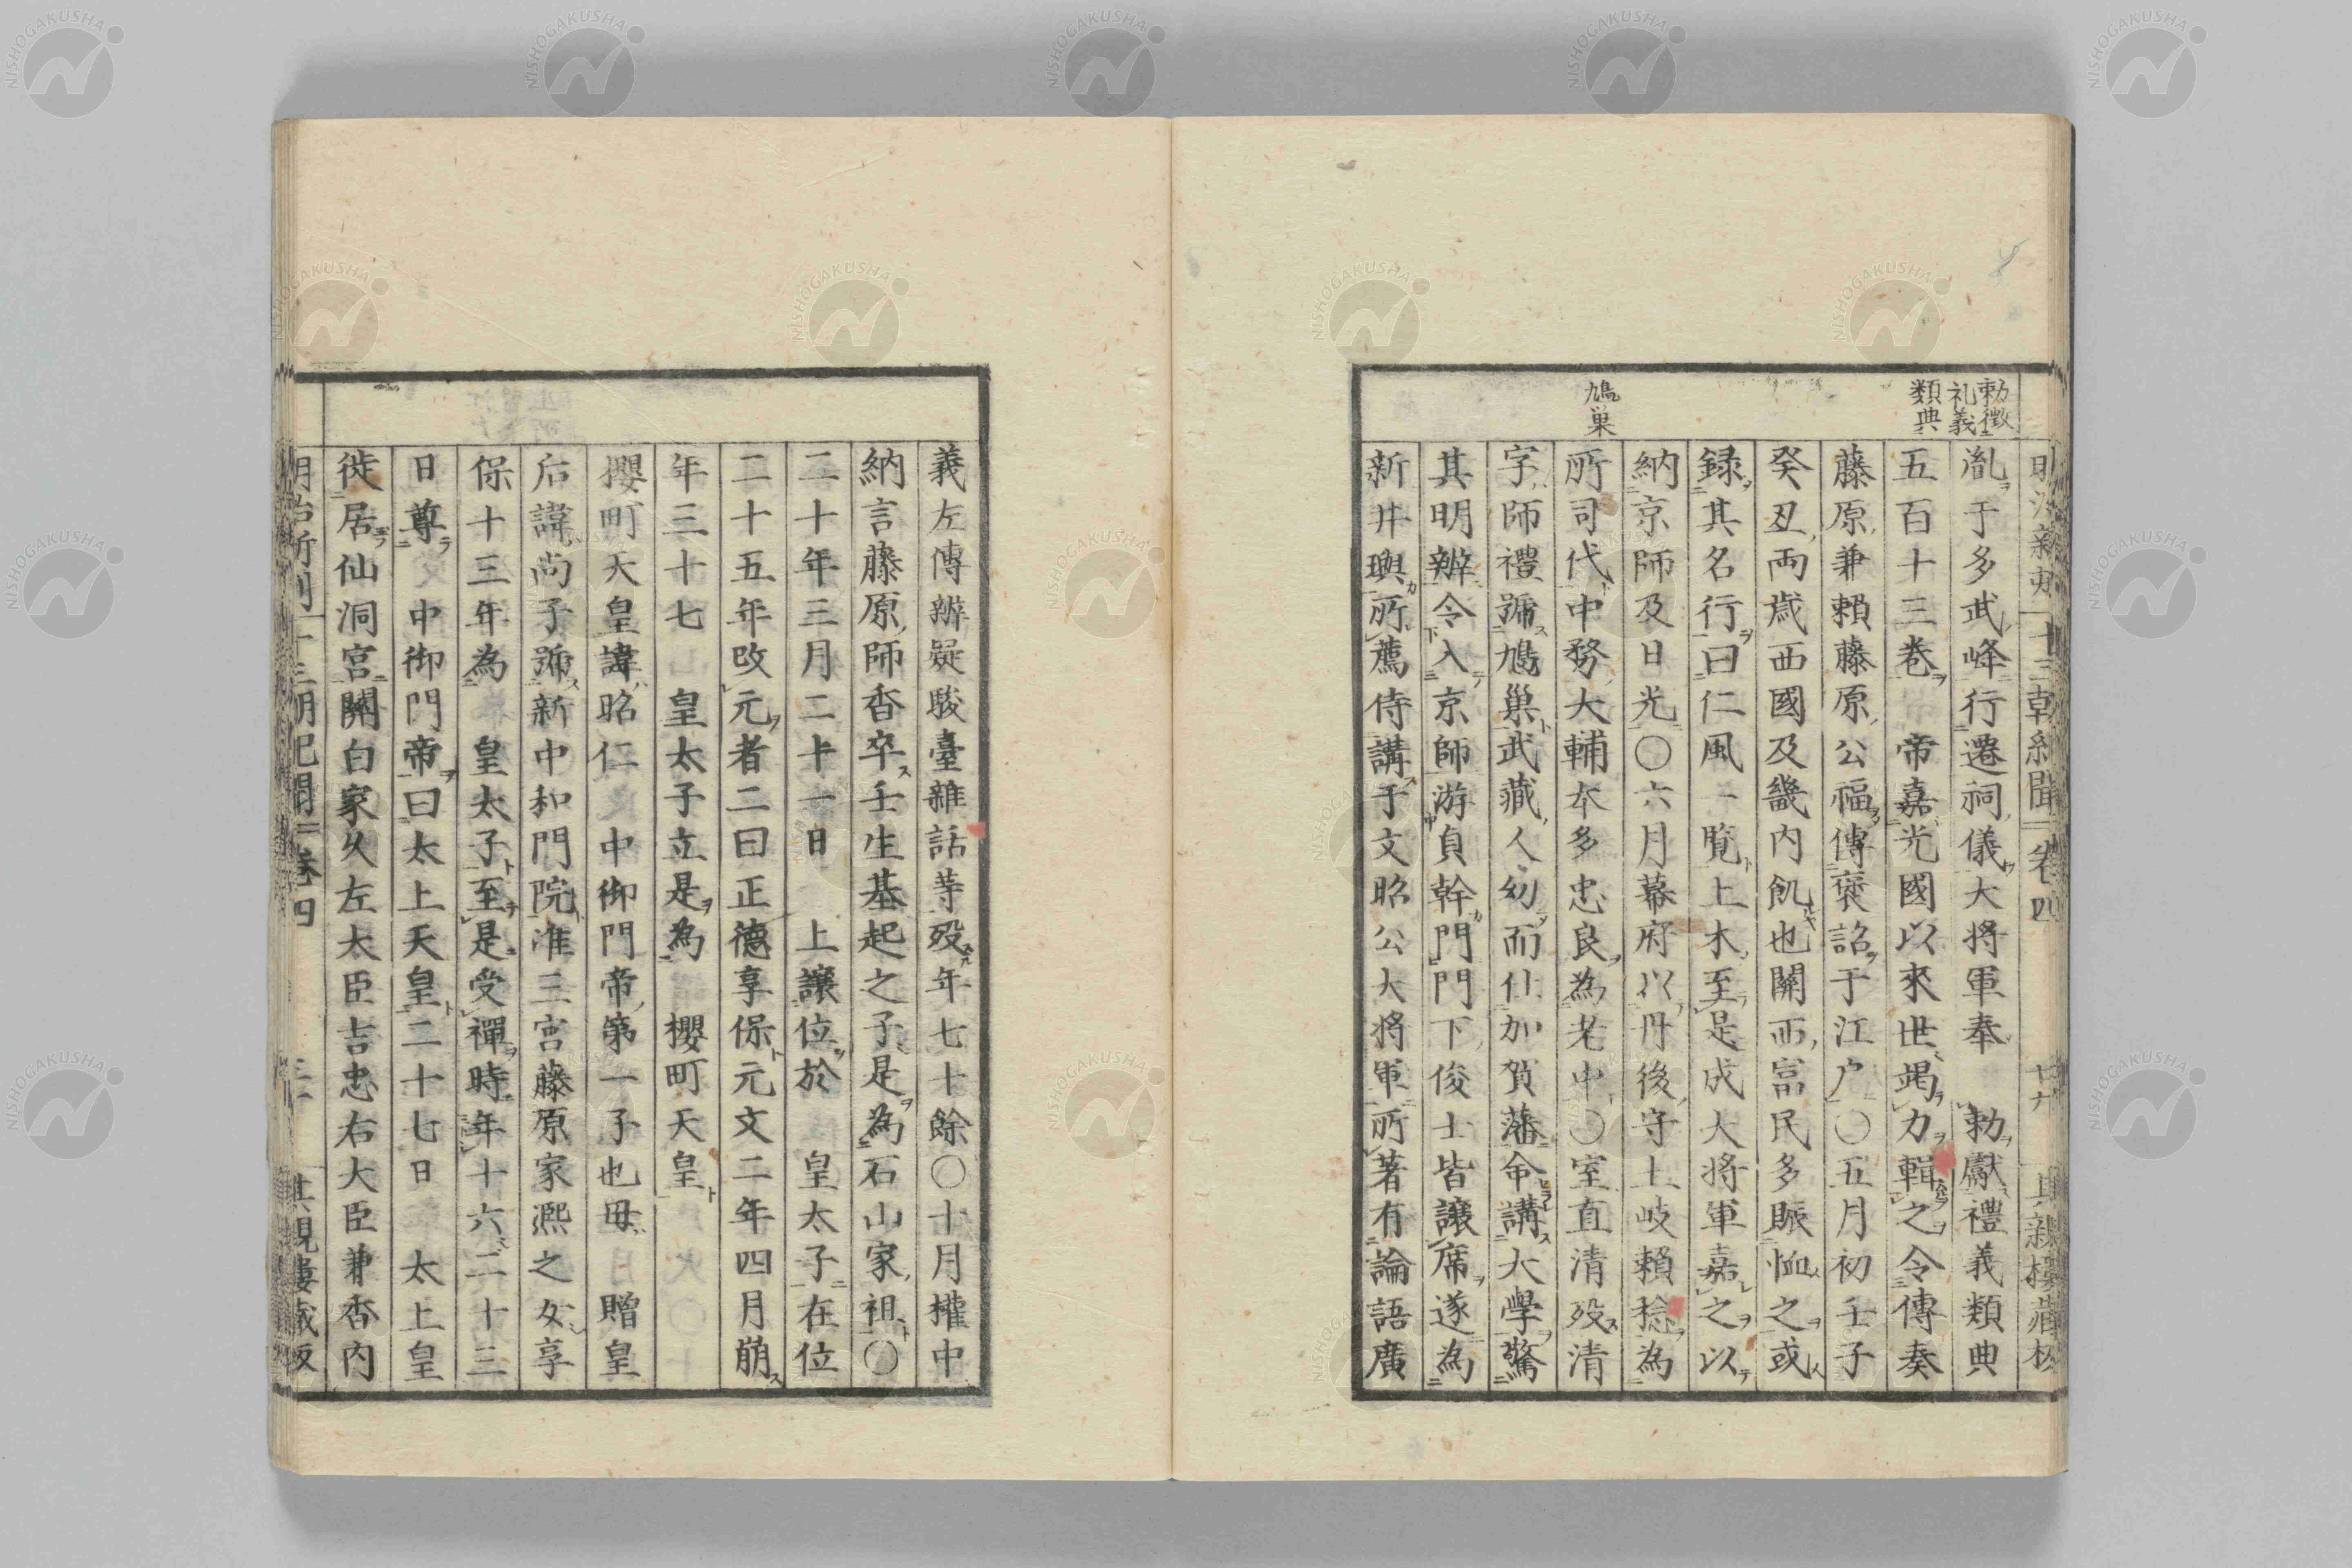 明治新刻 十三朝紀聞 卷四 其親樓藏板
勅徴
礼義
類典
胤于多武峰行遷祠儀大将軍奉 勅獻禮義類典
五百十三卷 帝嘉光國以來世竭力輯之令傳奏
藤原兼賴藤原公福傳褒詔于江户〇五月初壬子
癸丑兩歳西國及畿内飢也關西富民多賑恤之或
録其名行曰仁風一覽上木至是成大将軍嘉之以
納京師及日光〇六月幕府以丹後守土岐賴稔為
鳩巣
所司代中務大輔本多忠良為老中〇室直清歿清
字師禮號鳩巢武藏人幼而仕加賀藩命講大學驚
其明辨令入京師游貞幹門門下俊士皆讓席遂為
新井璵所薦侍講于文昭公大将軍所著有論語廣
義左傳辨疑駿臺雜話等歿年七十餘〇十月權中
納言藤原師香卒壬生基起之子是為石山家祖〇
二十年三月二十一日 上讓位於 皇太子在位
二十五年改元者二曰正德享保元文二年四月崩
年三十七 皇太子立是為 櫻町天皇
櫻町天皇諱昭仁 中御門帝第一子也母 贈皇
后諱尚子號新中和門院准三宮藤原家凞之女享
保十三年為 皇太子至是受禪時年十六二十三
日尊 中御門帝曰太上天皇二十七日 太上皇
徙居仙洞宮關白家久左太臣吉忠右大臣兼香内
明治新刻 十三朝紀聞 卷四 其親樓藏板